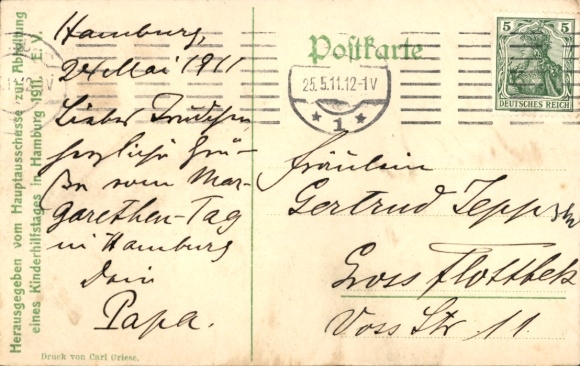 Herausgegeben vom Hauptausschesse zur Abhaltung
eines Kinderhilfstages in Hamburg 1911. E. V.
Hamburg,
24 Mai 1911
Liebes Trudchen
herzliche Grü-
ße vom Mar-
garethen-Tag
in Hamburg
Dein
Papa.
Druck von Carl Griese.
Postkarte
25.5.11.12-1V
* 1 *
5 5
DEUTSCHES REICH
Fräulein
Gertrud
Gross Flottbek
Voss Str 11.